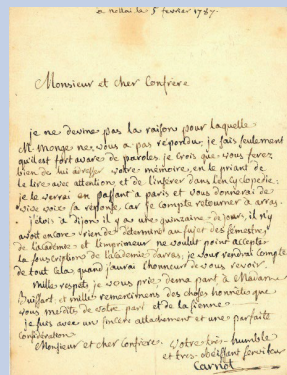 a nollai le 5 fevrier 1787.
Monsieur et cher Confrère
je ne devine pas la raison pour laquelle
M. Monge ne vous a pas répondu, je sais seulement
qu'il est fort avare de paroles. je crois que vous ferez
bien de lui adresser votre mémoire, en le priant de
le lire avec attention, et de l'inserer dans l'encyclopedie.
je le verrai en passant a paris et vous donnerai de
vive voix sa réponse, car je compte retourner a arras.
j'étois a Dijon il y a une quinzaine de jours, il n'y
avoit encore rien de determiné au sujet des semestres
de l'academie et l'imprimeur ne vouloit point accepter
la souscription de l'academie d'arras, je vous rendrai compte
de tout cela quand j'aurai l'honneur de vous revoir
mille respects je vous prie, de ma part a Madame
Buissart et mille remercimens des choses honnêtes que
vous me dites de votre part et de la sienne.
je suis avec un sincère attachement et une parfaite
consideration
Monsieur et cher Confrère. Votre très-humble
et très obéissant serviteur
Carnot